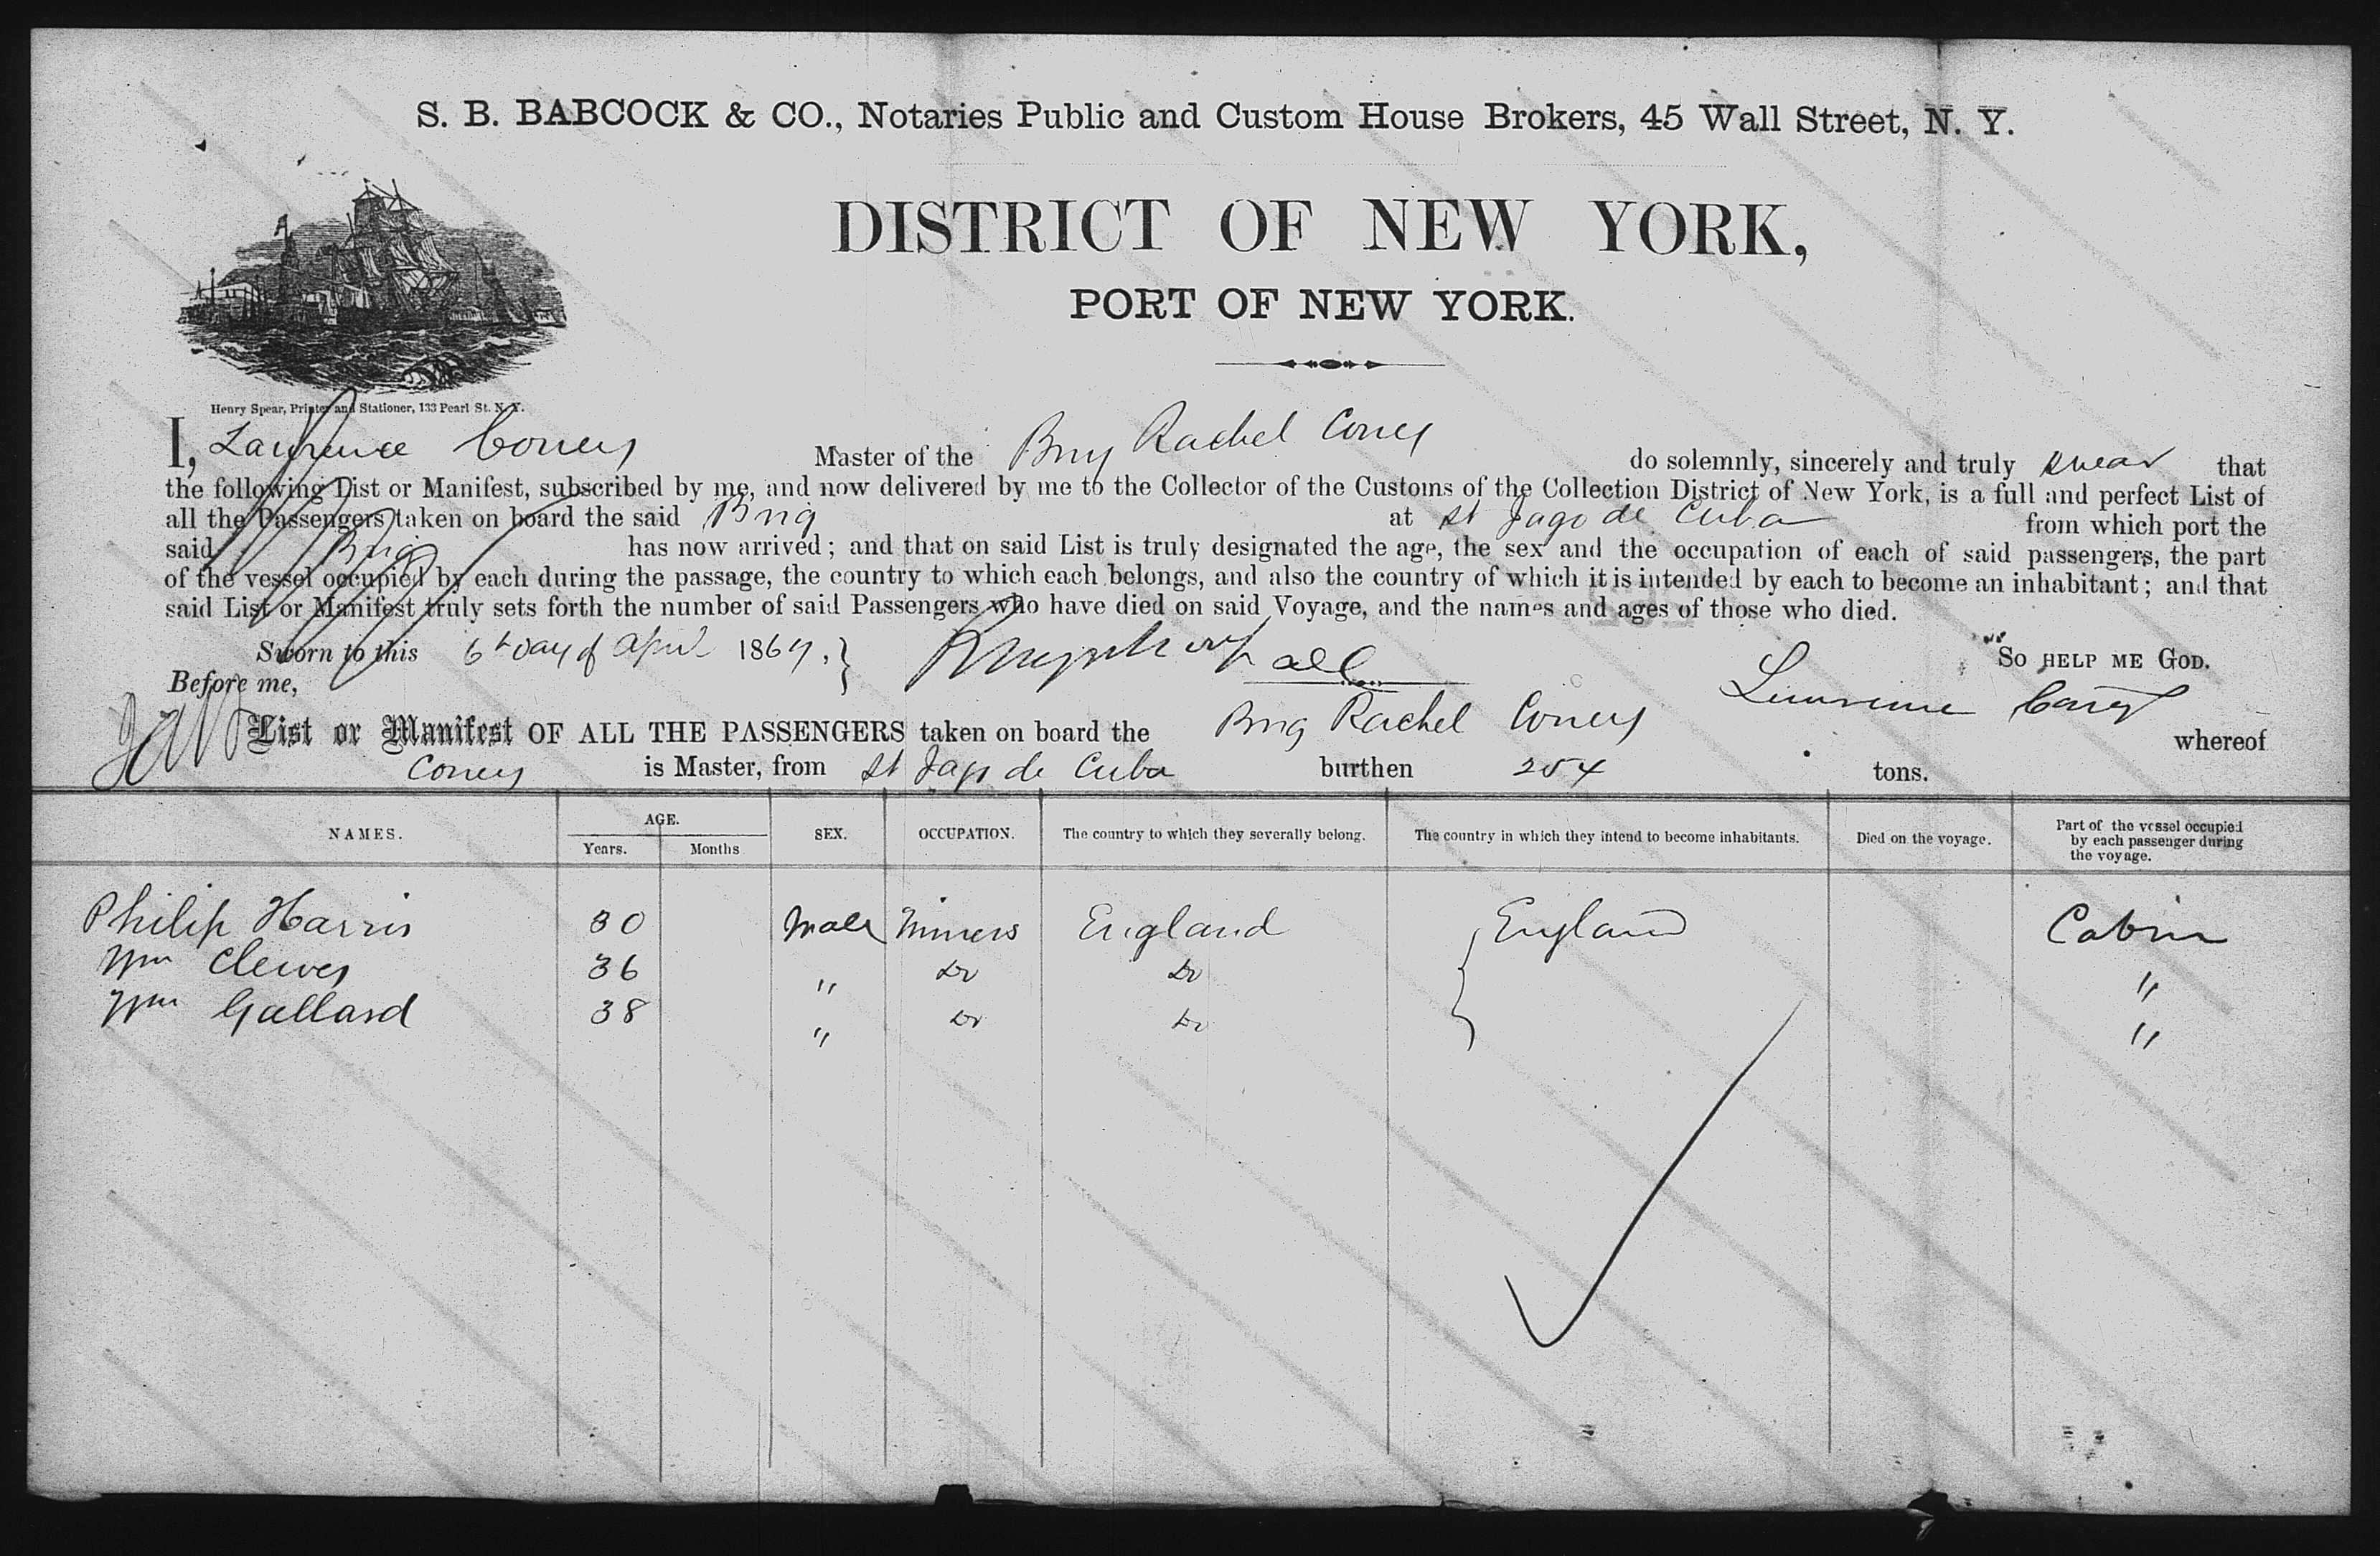 S. B. BABCOCK & CO., Notaries Public and Custom House Brokers, 45 Wall Street, N. Y.
DISTRICT OF NEW YORK,
PORT OF NEW YORK.
Henry Spear, Printer and Stationer, 133 Pearl St. N. Y.
I, Lawrence Coney Master of the Brig Rachel Coney do solemnly, sincerely and truly swear that
the following List or Manifest, subscribed by me, and now delivered by me to the Collector of the Customs of the Collection District of New York, is a full and perfect List of
all the Passengers taken on board the said Brig at St Jago de Cuba from which port the
said Brig has now arrived; and that on said List is truly designated the age, the sex and the occupation of each of said passengers, the part
of the vessel occupied by each during the passage, the country to which each belongs, and also the country of which it is intended by each to become an inhabitant; and that
said List or Manifest truly sets forth the number of said Passengers who have died on said Voyage, and the names and ages of those who died.
Sworn to this 6th day of April 1869. } all So HELP ME GOD.
Before me, Lawrence Coney
List or Manifest OF ALL THE PASSENGERS taken on board the Brig Rachel Coney whereof
Coney is Master, from St Jago de Cuba burthen 254 tons.
NAMES. AGE. Years. Months SEX. OCCUPATION. The country to which they severally belong. The country in which they intend to become inhabitants. Died on the voyage. Part of the vessel occupied by each passenger during the voyage.
Philip Harris 30 Male Miners England { England Cabin
Wm Clewes 36 " Do Do "
Wm Gallard 38 " Do Do "